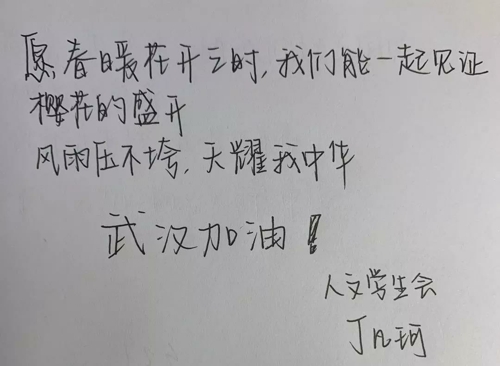 愿春暖花开之时，我们能一起见证
樱花的盛开
风雨压不垮，天耀我中华
武汉加油！
人文学生会
丁凡珂